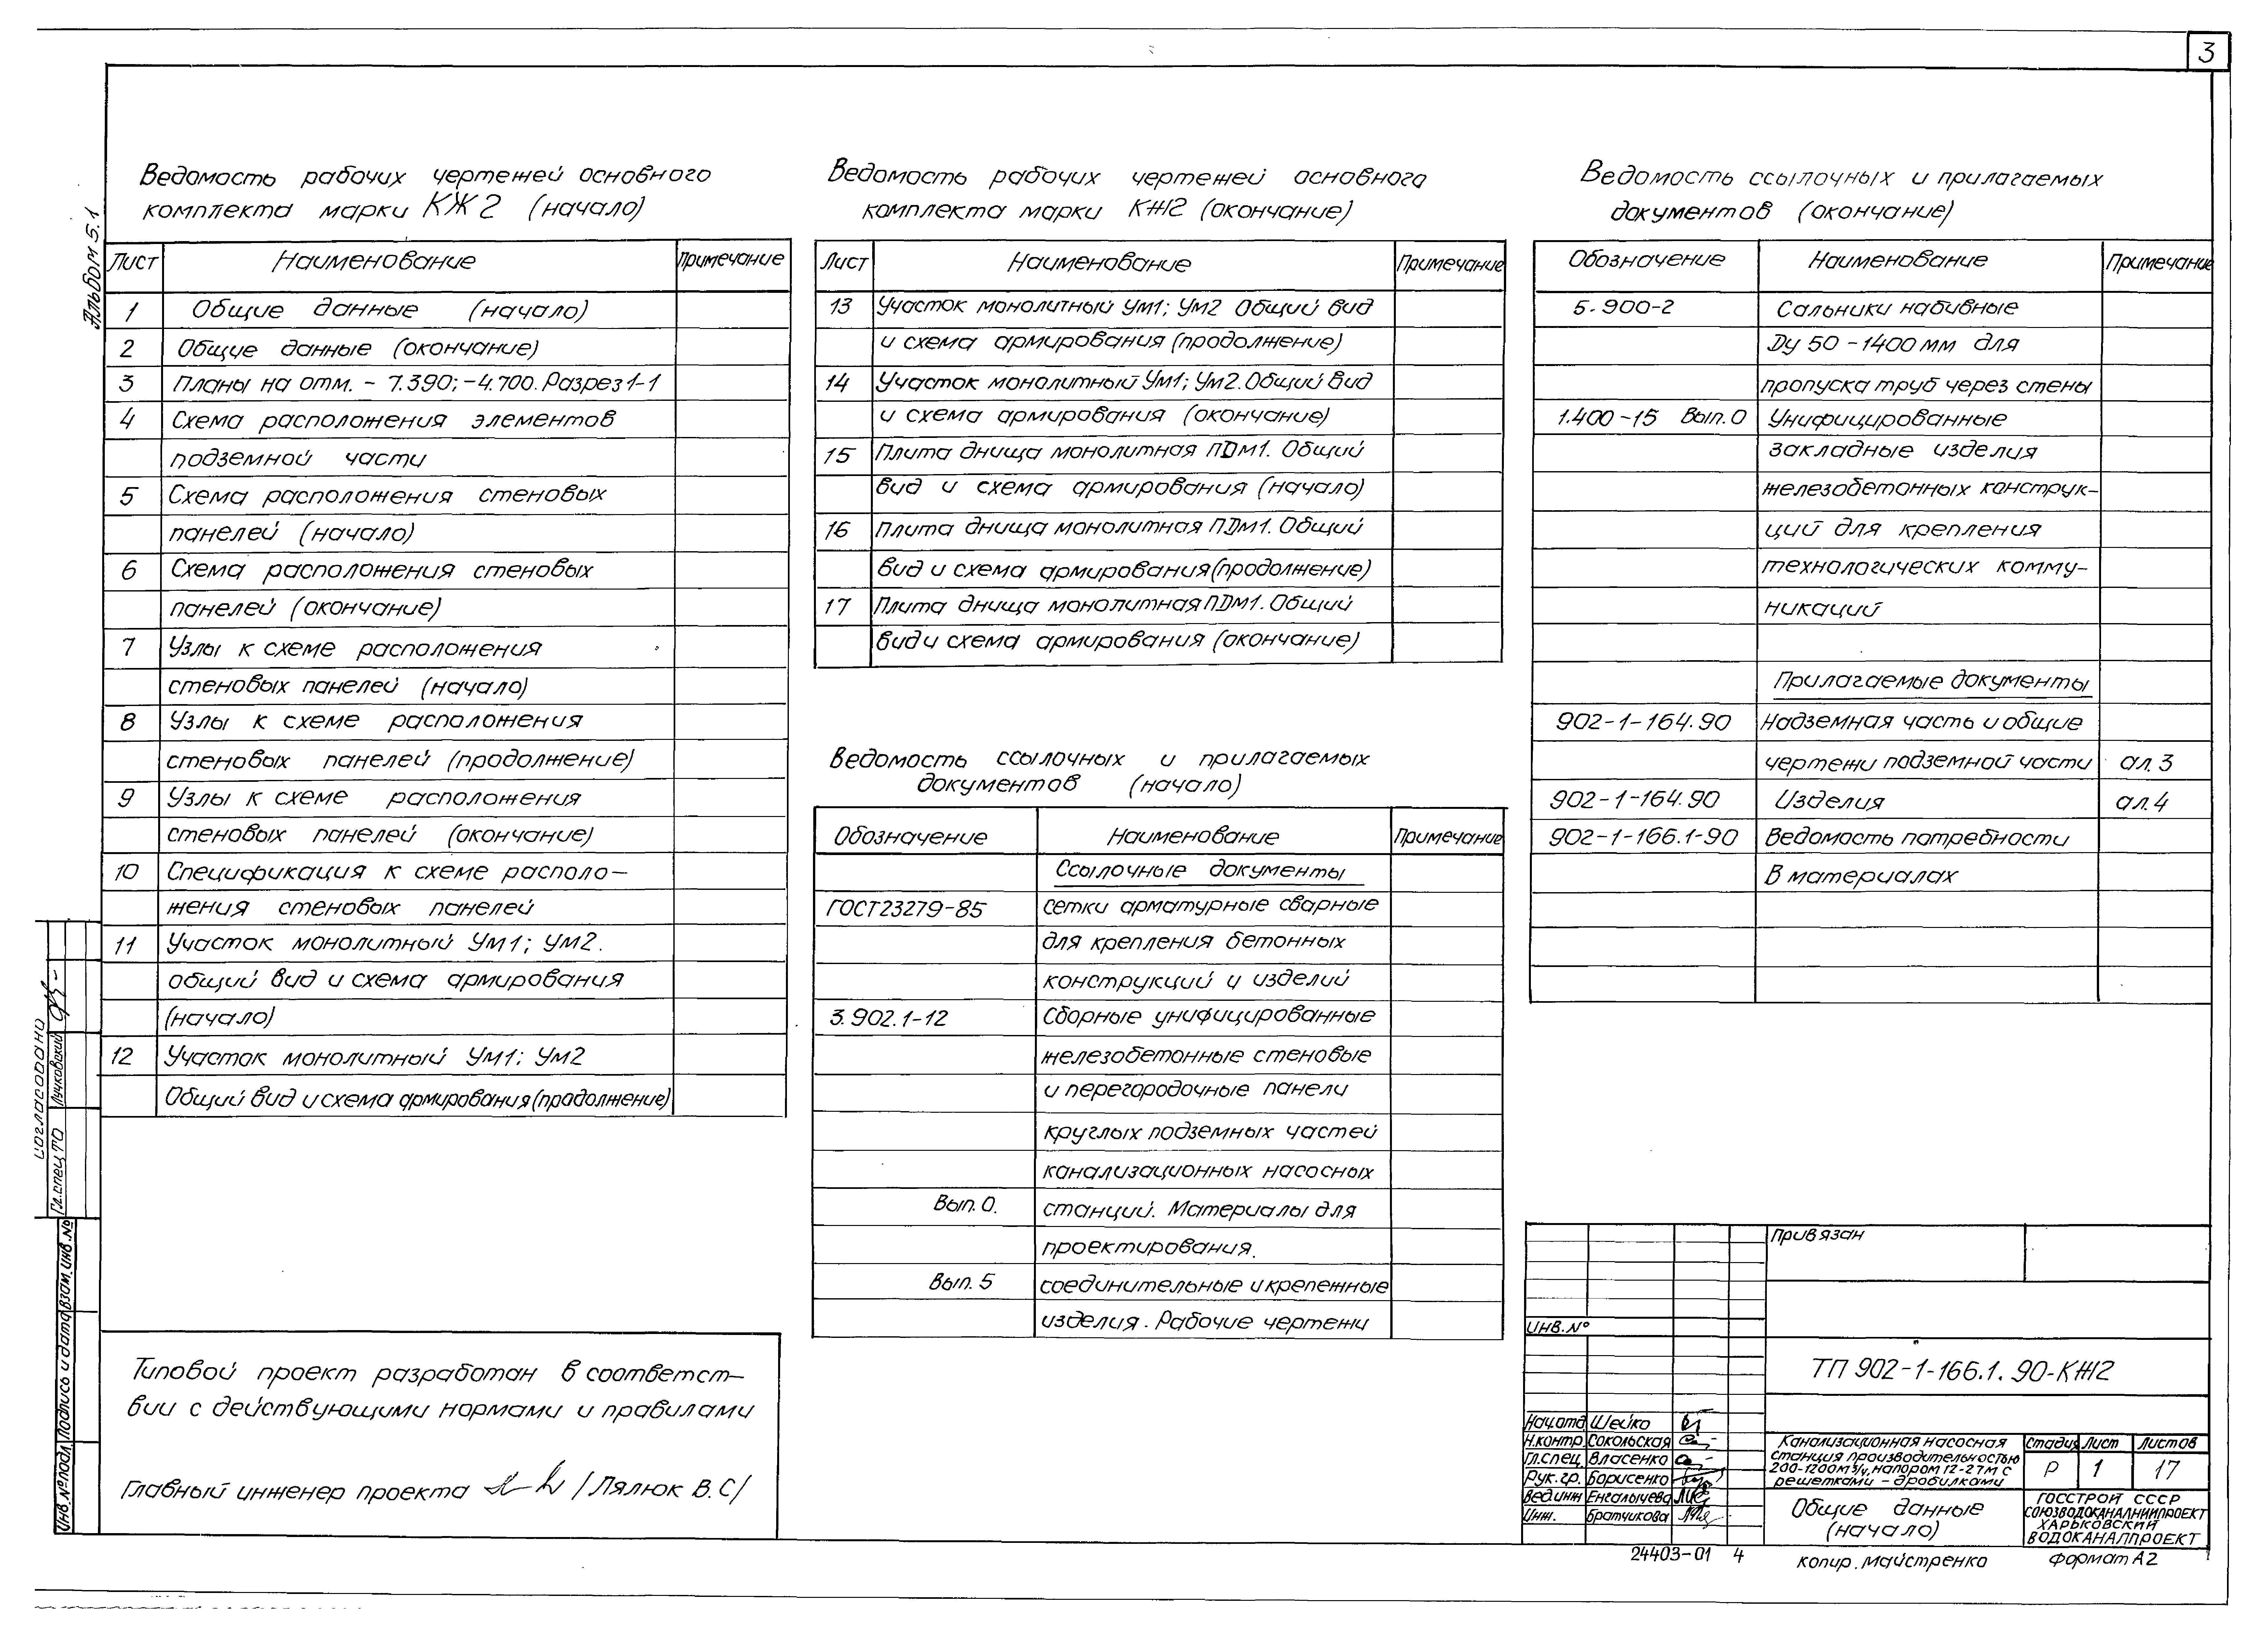 3
Альбом 5.1
Ведомость рабочих чертежей основного
комплекта марки КЖ2 (начало)
Лист Наименование Примечание
1 Общие данные (начало)
2 Общие данные (окончание)
3 Планы на отм. - 7.390; -4.700. Разрез 1-1
4 Схема расположения элементов
подземной части
5 Схема расположения стеновых
панелей (начало)
6 Схема расположения стеновых
панелей (окончание)
7 Узлы к схеме расположения
стеновых панелей (начало)
8 Узлы к схеме расположения
стеновых панелей (продолжение)
9 Узлы к схеме расположения
стеновых панелей (окончание)
10 Спецификация к схеме располо-
жения стеновых панелей
11 Участок монолитный Ум1; Ум2.
общий вид и схема армирования
(начало)
12 Участок монолитный Ум1; Ум2
Общий вид и схема армирования (продолжение)
Типовой проект разработан в соответст-
вии с действующими нормами и правилами
Главный инженер проекта /Лялюк В.С/
Ведомость рабочих чертежей основного
комплекта марки КЖ2 (окончание)
Лист Наименование Примечание
13 Участок монолитный Ум1; Ум2 Общий вид
и схема армирования (продолжение)
14 Участок монолитный Ум1; Ум2. Общий вид
и схема армирования (окончание)
15 Плита днища монолитная ПДм1. Общий
вид и схема армирования (начало)
16 Плита днища монолитная ПДм1. Общий
вид и схема армирования (продолжение)
17 Плита днища монолитная ПДм1. Общий
вид и схема армирования (окончание)
Ведомость ссылочных и прилагаемых
документов (начало)
Обозначение Наименование Примечание
Ссылочные документы
ГОСТ 23279-85 сетки арматурные сварные
для крепления бетонных
конструкций и изделий
3.902.1-12 Сборные унифицированные
железобетонные стеновые
и перегородочные панели
круглых подземных частей
канализационных насосных
Вып. 0. станций. Материалы для
проектирования.
Вып. 5 соединительные и крепежные
изделия. Рабочие чертежи
Ведомость ссылочных и прилагаемых
документов (окончание)
Обозначение Наименование Примечание
5.900-2 Сальники набивные
Ду 50-1400 мм для
пропуска труб через стены
1.400-15 Вып. 0 Унифицированные
закладные изделия
железобетонных конструк-
ций для крепления
технологических комму-
никаций
Прилагаемые документы
902-1-164.90 Надземная часть и общие
чертежи подземной части ал. 3
902-1-164.90 Изделия ал. 4
902-1-166.1-90 Ведомость потребности
в материалах
согласовано
Гл. спец ТО Лучковский
Инв. № подл. Подпись и дата взам. инв. №
Привязан
инв. №
ТП 902-1-166.1. 90-КЖ2
Нач.отд Шейко
Н.контр. Сокольская
Гл.спец. Власенко
Рук. гр. Борисенко
Вед.инж Енгалычева
Инж. Братчикова
Канализационная насосная
станция производительностью
200-1200 м³/ч, напором 12-27м с
решетками - дробилками
Стадия Лист Листов
Р 1 17
Общие данные
(начало)
ГОССТРОЙ СССР
СОЮЗВОДОКАНАЛНИИПРОЕКТ
ХАРЬКОВСКИЙ
ВОДОКАНАЛПРОЕКТ
24403-01 4
копир. Майстренко
Формат А2